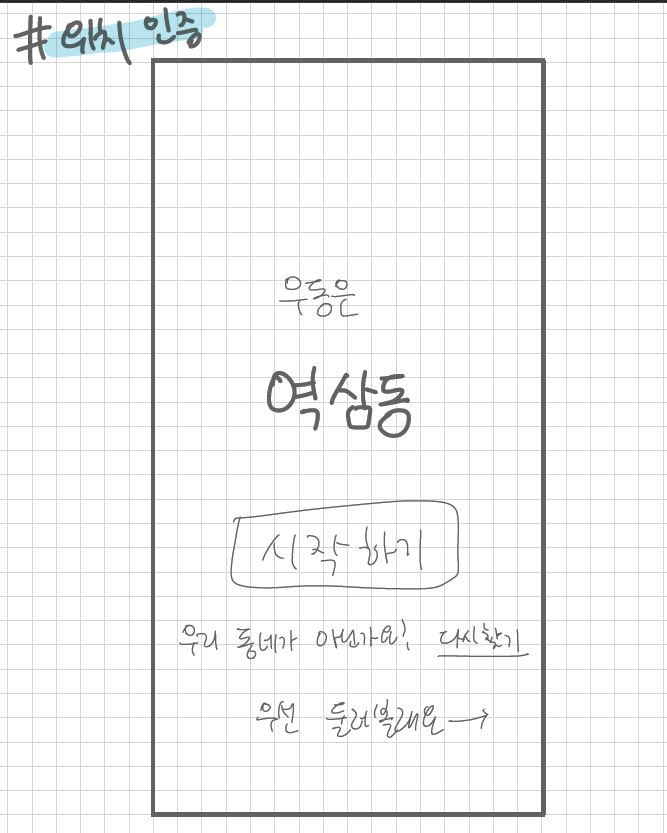 # 위치 인증
우동은
역삼동
시작하기
우리 동네가 아닌가요? 다시찾기
우선 둘러볼래요 →